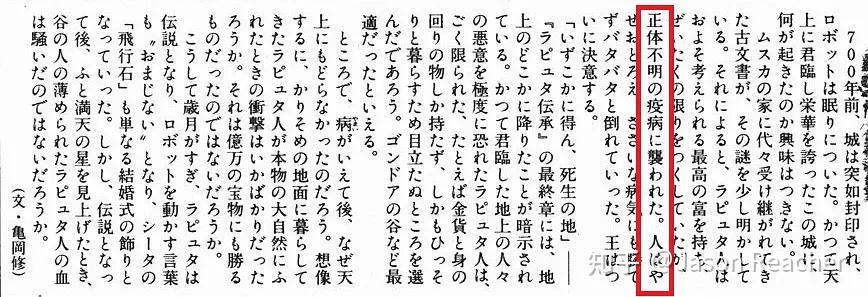 700年前、城は突如封印され
ロボットは眠りについた。かつて天
上に君臨し栄華を誇ったこの城に
何が起きたのか興味はつきない。
ムスカの家に代々受け継がれてき
た古文書が、その謎を少し明かして
いる。それによると、ラピュタ人は
およそ考えられる最高の富を持ち
ぜいたくの限りをつくしていたが
正体不明の疫病に襲われた。人はや
せおとろえ、ささいな病気にも
ずバタバタと倒れていった。王はつ
いに決意する。
「いずこに得ん、死生の地」──
『ラピュタ伝承』の最終章には、地
上のどこかに降りたことが暗示され
ている。かつて君臨した地上の人々
の悪意を極度に恐れたラピュタ人は、
ごく限られた、たとえば金貨と身の
回りの物しか持たず、しかもひっそ
りと暮らすため目立たぬところを選
んだであろう。ゴンドアの谷など最
適だったといえる。
ところで、病がいえて後、なぜ天
上にもどらなかったのだろう。想像
するに、かりそめの地面に暮らして
きたラピュタ人が本物の大自然にふ
れたときの衝撃はいかばかりだった
ろうか。それは億万の宝物にも勝る
ものだったのではないだろうか。
こうして歳月がすぎ、ラピュタは
伝説となり、ロボットを動かす言葉
も〝おまじない〟となり、シータの
「飛行石」も単なる結婚式の飾りと
なっていった。しかし、伝説となっ
て後、ふと満天の星を見上げたとき、
谷の人の薄められたラピュタ人の血
は騒いだのではないだろうか。
（文・亀岡修）
知乎 @Jason Reacher